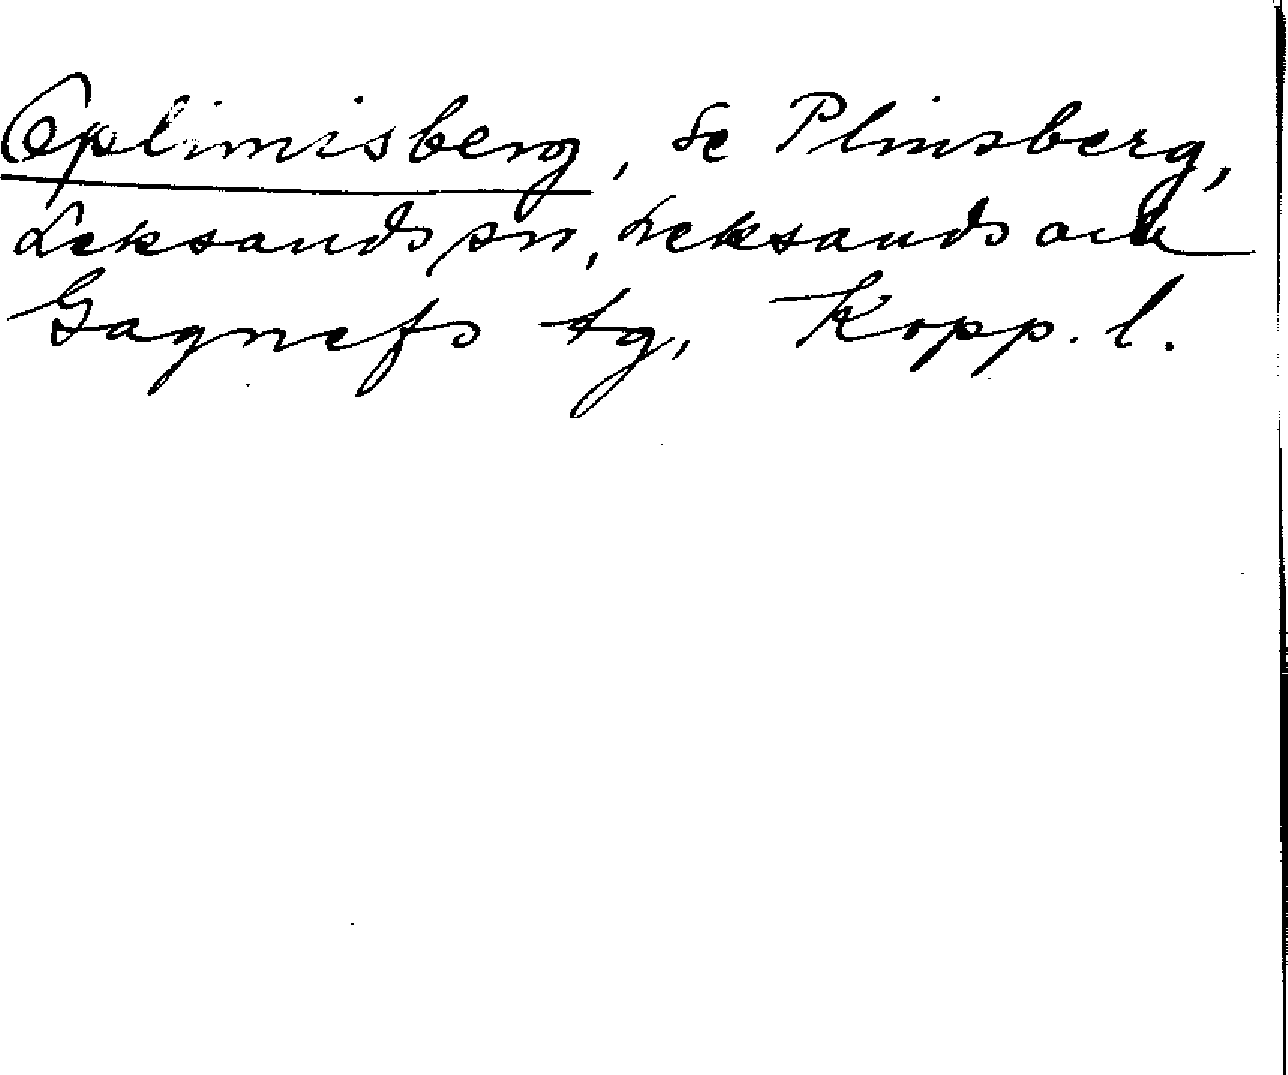 Oplimisberg, Se Plinsberg,
Leksands sn, Leksands och
Gagnefs tg, Kopp. l.